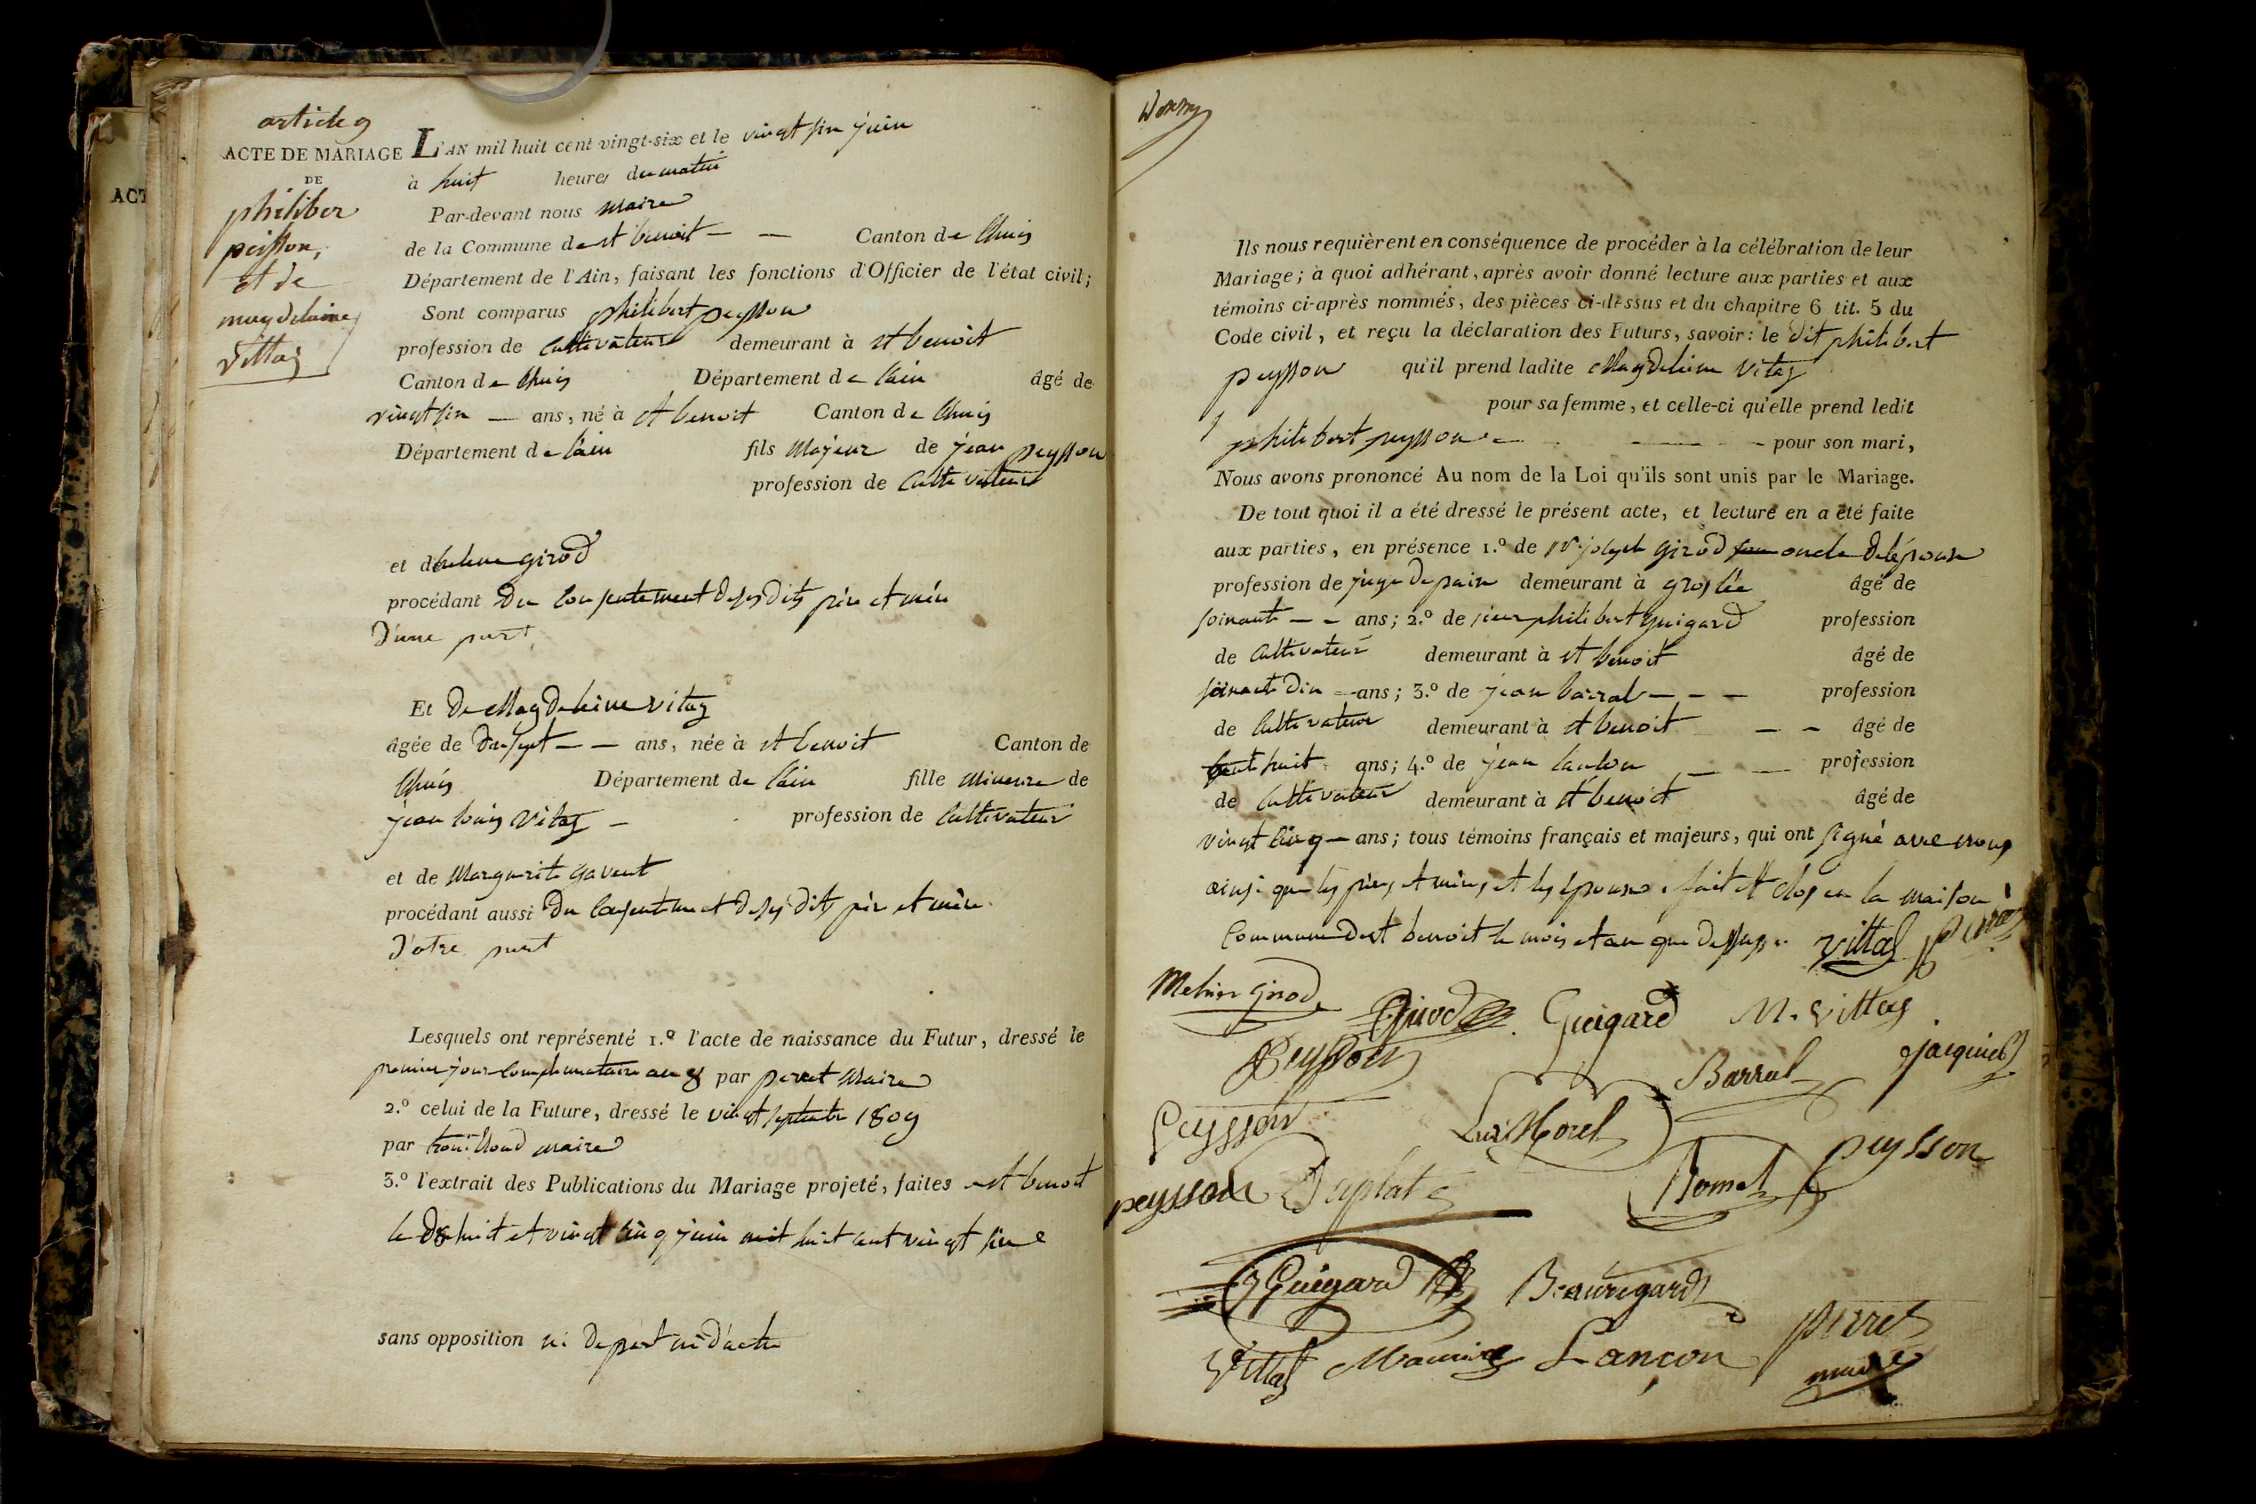 article 9
ACTE DE MARIAGE
DE
philiber
peisson,
et de
magdelaine
Vittaz
ACT
L'AN mil huit cent vingt-six et le vingt six juin
à huit heures du matin
Par-devant nous maire
de la Commune de st benoit — — Canton de lhuis
Département de l'Ain, faisant les fonctions d'Officier de l'état civil;
Sont comparus philibert peysson
profession de cultivateur demeurant à st benoit
Canton de lhuis Département de l'ain âgé de
vingt six — ans, né à st benoit Canton de lhuis
Département de l'ain fils majeur de jean peysson
profession de cultivateur
et d'helene girod
procédant du consentement de ses dits père et mère
d'une part
Et de Magdeleine vitaz
âgée de dix sept — — ans, née à st benoit Canton de
lhuis Département de l'ain fille mineure de
jean louis vitaz — profession de cultivateur
et de Marguerite gavent
procédant aussi du consentement de ses dits père et mère.
d'otre part
Lesquels ont représenté 1.º l'acte de naissance du Futur, dressé le
premier jour complementaire an 8 par peret maire
2.º celui de la Future, dressé le vingt septembre 1809
par trouilloud maire
3.º l'extrait des Publications du Mariage projeté, faites a st benoit
le dix huit et vingt cinq juin mil huit cent vingt six
sans opposition ni de part ni d'autre
Ils nous requièrent en conséquence de procéder à la célébration de leur
Mariage; à quoi adhérant, après avoir donné lecture aux parties et aux
témoins ci-après nommés, des pièces ci-dessus et du chapitre 6 tit. 5 du
Code civil, et reçu la déclaration des Futurs, savoir: le dit philibert
peysson qu'il prend ladite Magdeleine vitaz
pour sa femme, et celle-ci qu'elle prend ledit
philibert peysson — — pour son mari,
Nous avons prononcé Au nom de la Loi qu'ils sont unis par le Mariage.
De tout quoi il a été dressé le présent acte, et lecture en a été faite
aux parties, en présence 1.º de sr joseph girod oncle de l'épouse
profession de juge de paix demeurant à groslée âgé de
soixante — — ans; 2.º de sieur philibert guigard profession
de cultivateur demeurant à st benoit âgé de
soixante dix — ans; 3.º de jean barral — — — profession
de cultivateur demeurant à st benoit — — âgé de
huit ans; 4.º de jean — — profession
de cultivateur demeurant à st benoit âgé de
vingt cinq — ans; tous témoins français et majeurs, qui ont signé avec nous
ainsi que les pères et mères et les époux. fait et clos en la maison
Commune de st benoit le mois et an que dessus. vittaz
girod
Girod Guigard M. Vittaz
Peysson Barral jacquier
Peysson Morel peysson
peysson Duplat Bornet
J Guigard Beauregard
Vittaz Maurice Lançon perret
maire